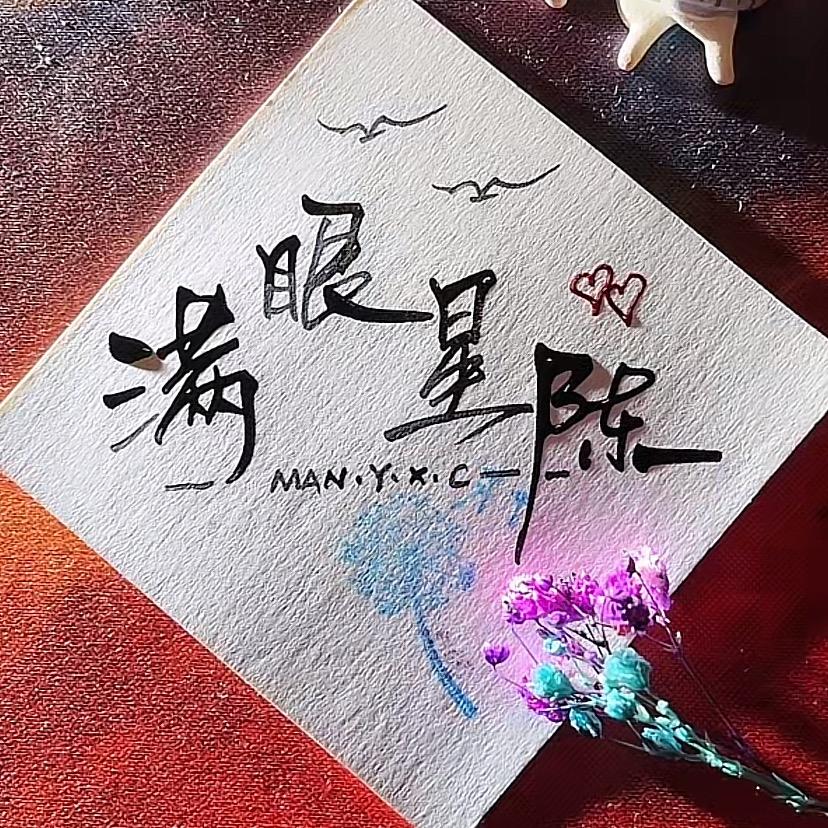 满眼星陈
MAN·Y·X·C